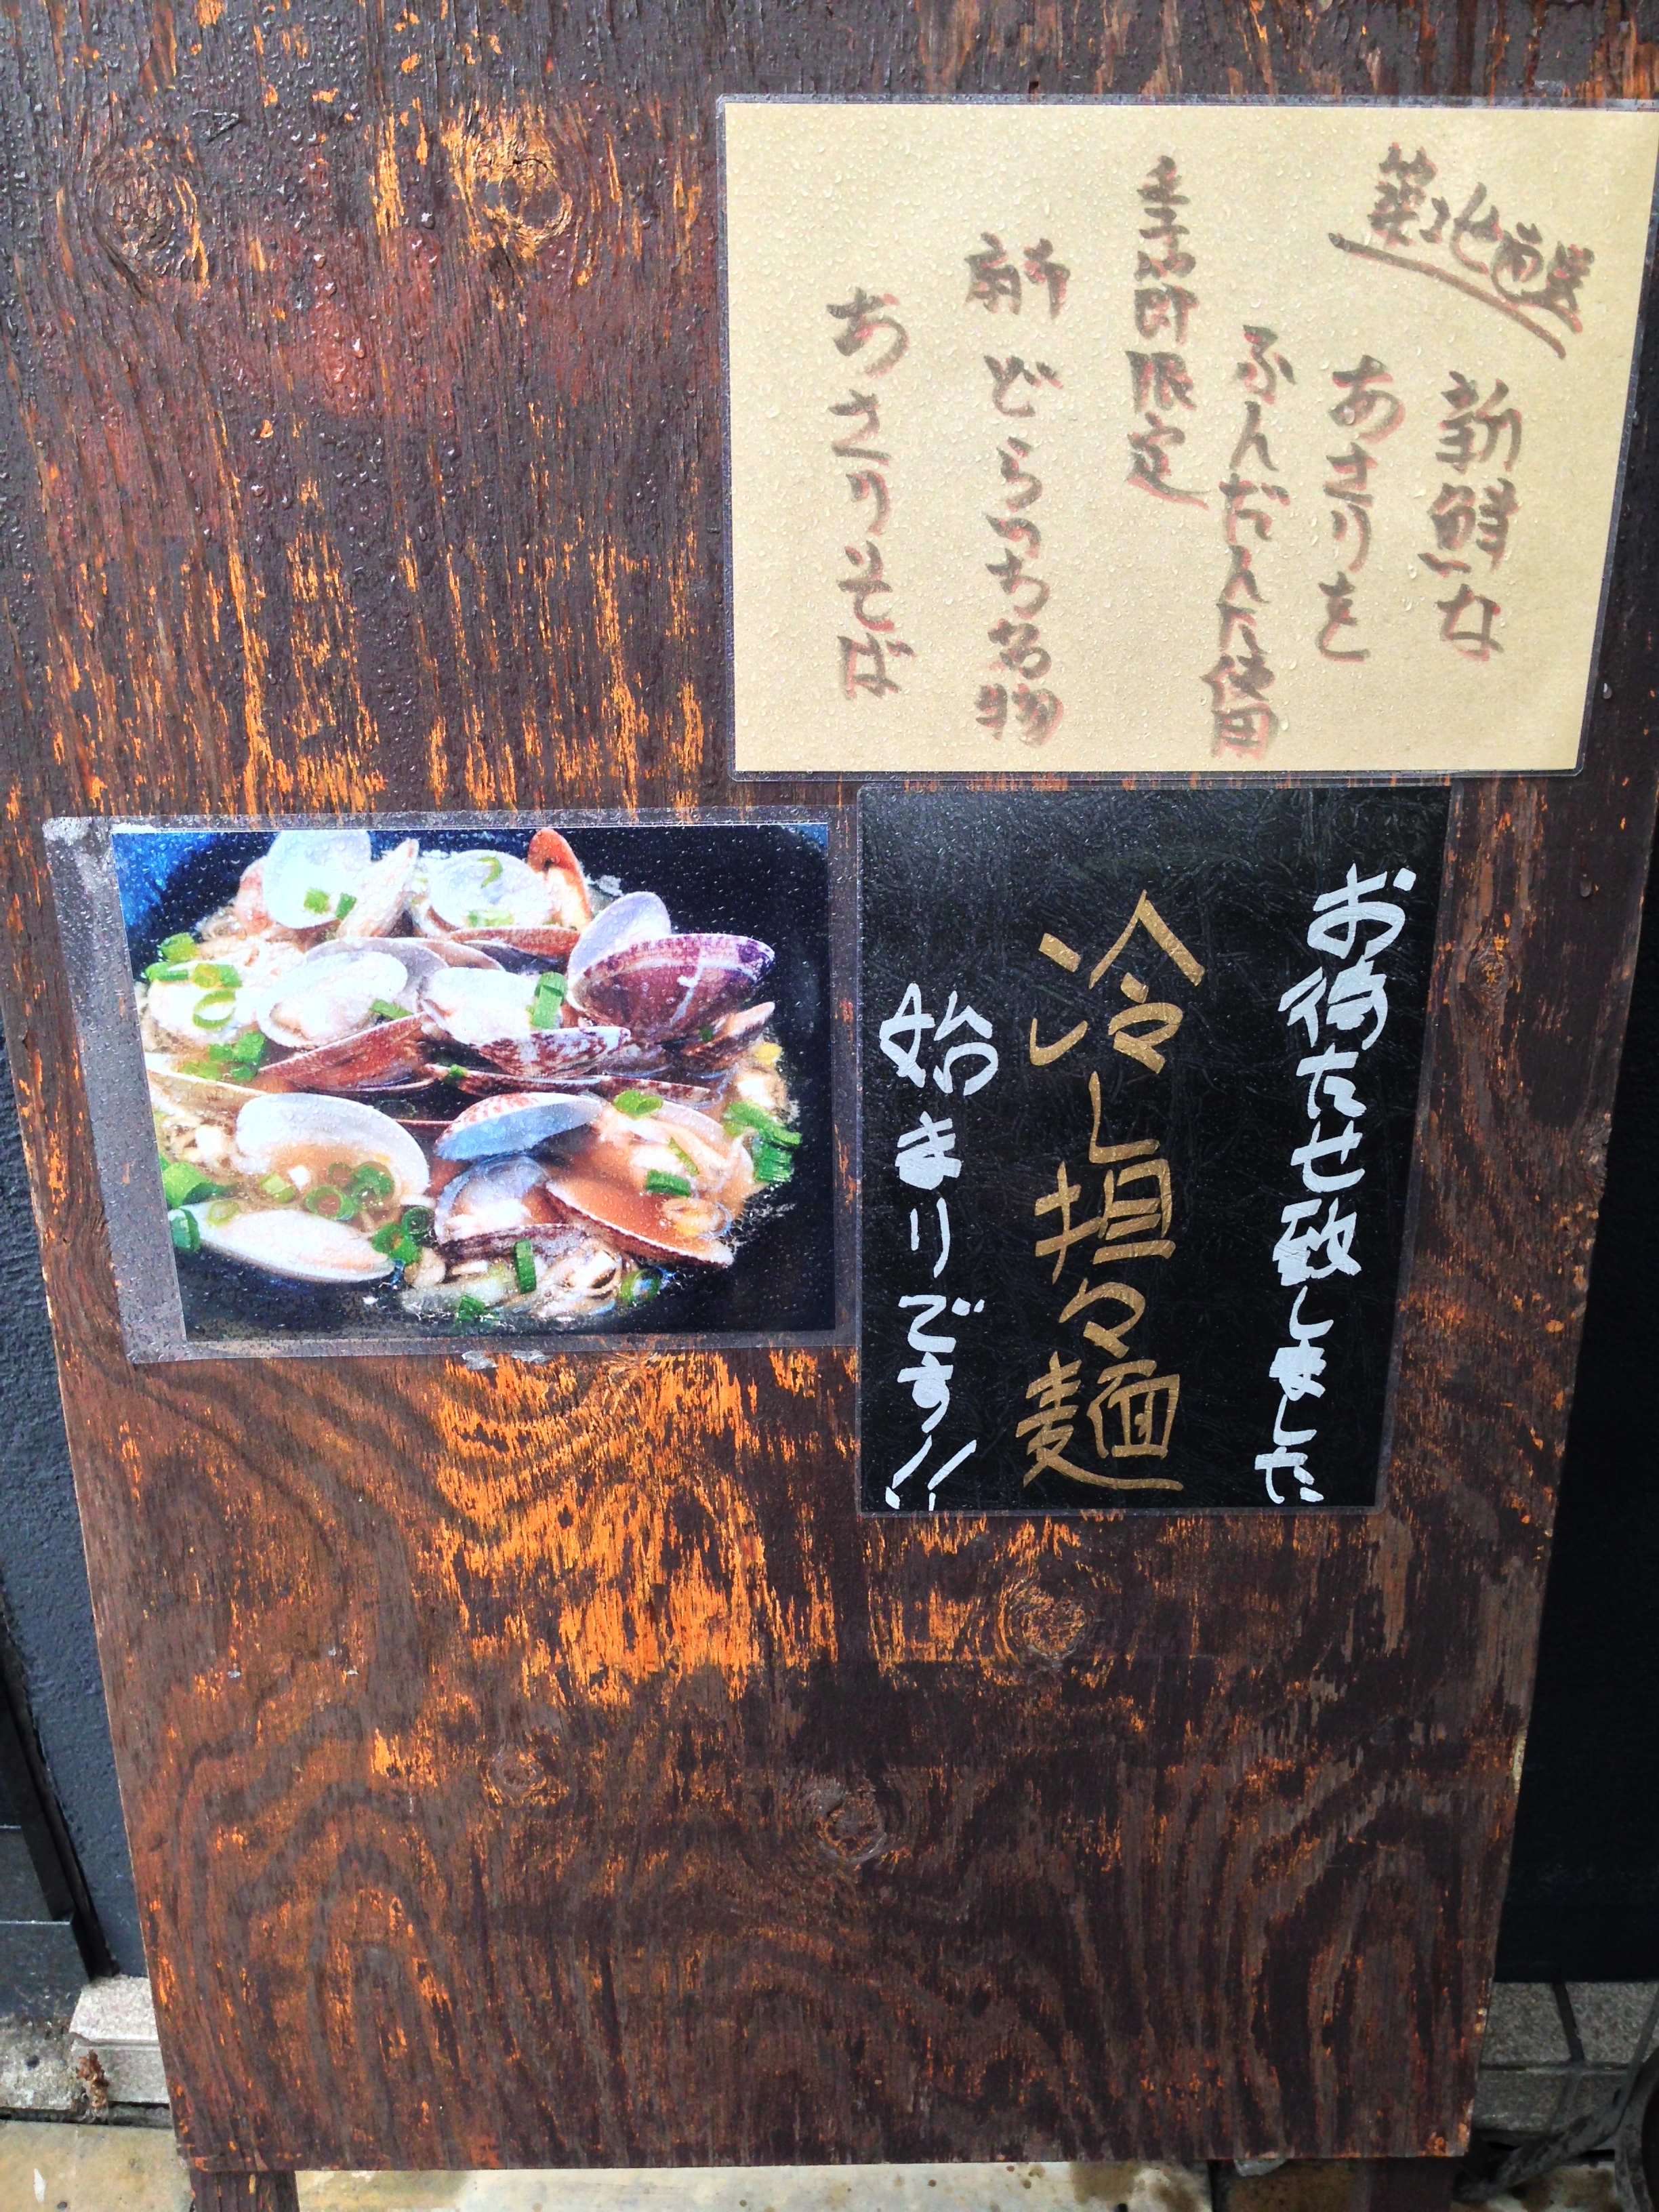 築地直送
新鮮な
あさりを
ふんだんに使用
季節限定
新どらっち名物
あさりそば
お待たせ致しました
冷し坦々麺
始まりです!!